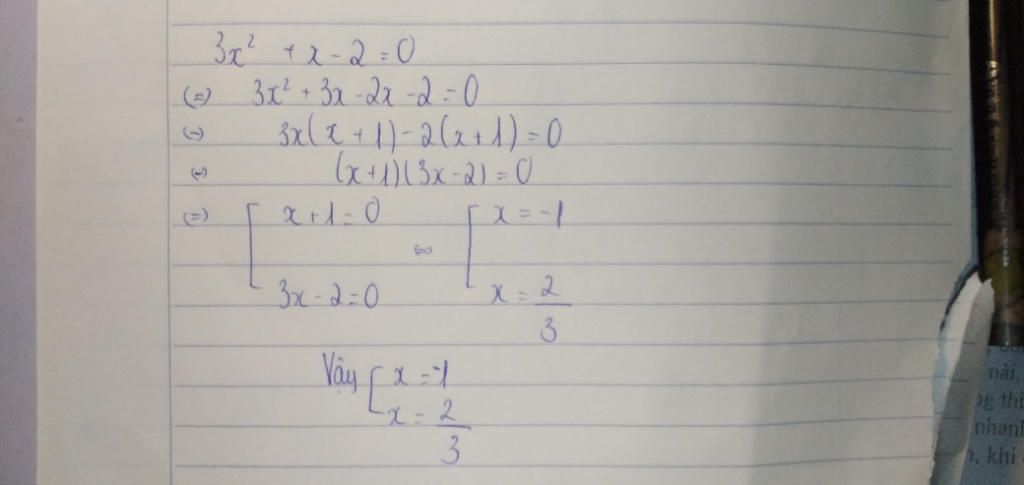 3x² + x - 2 = 0
(=) 3x² + 3x - 2x - 2 = 0
(=) 3x(x + 1) - 2(x + 1) = 0
(=) (x + 1)(3x - 2) = 0
(=) [ x + 1 = 0 (=) [ x = -1
3x - 2 = 0 x = 2/3
Vậy [ x = -1
x = 2/3
nải,
ng thi
nhanh
khi